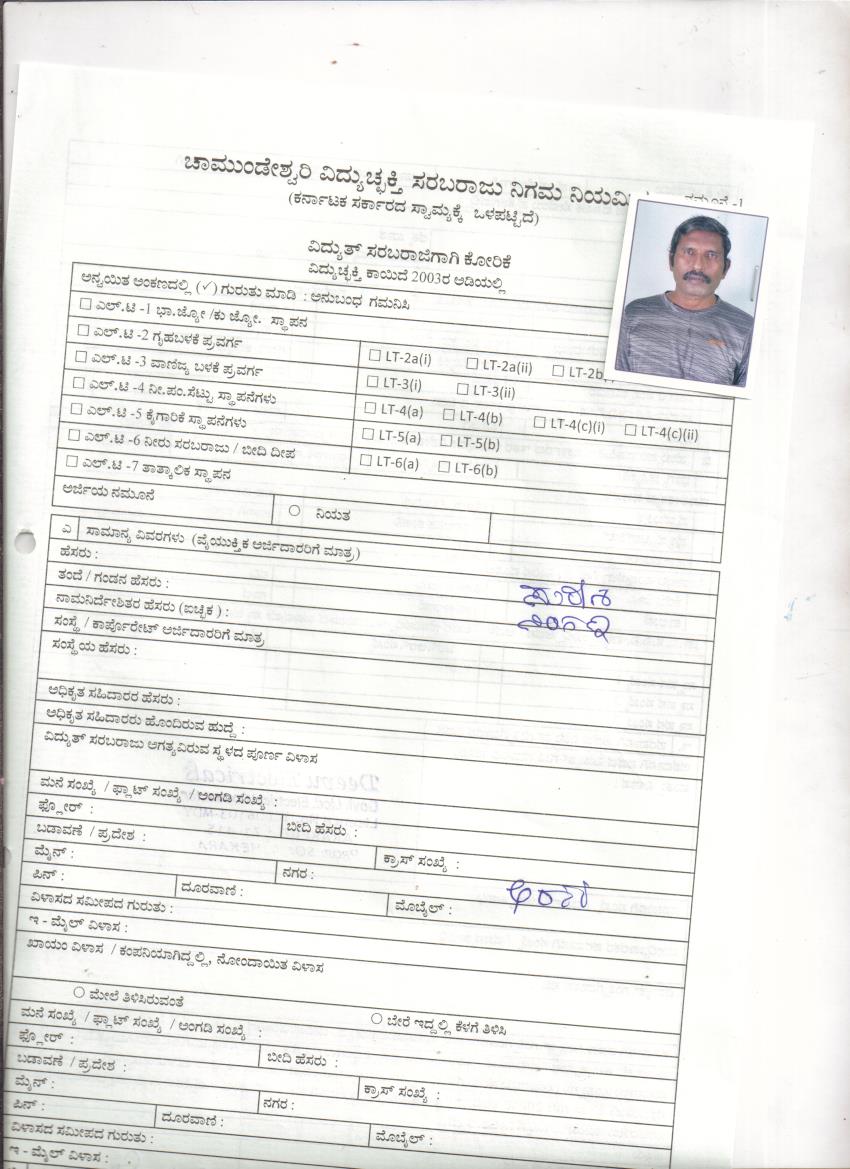 ಚಾಮುಂಡೇಶ್ವರಿ ವಿದ್ಯುಚ್ಛಕ್ತಿ ಸರಬರಾಜು ನಿಗಮ
ನಮೂನೆ -1
(ಕರ್ನಾಟಕ ಸರ್ಕಾರದ ಸ್ವಾಮ್ಯಕ್ಕೆ ಒಳಪಟ್ಟಿದೆ)
ವಿದ್ಯುತ್ ಸರಬರಾಜಿಗಾಗಿ ಕೋರಿಕೆ
ವಿದ್ಯುಚ್ಛಕ್ತಿ ಕಾಯಿದೆ 2003ರ ಅಡಿಯಲ್ಲಿ
ಅನ್ವಯಿತ ಅಂಕಣದಲ್ಲಿ (✓) ಗುರುತು ಮಾಡಿ : ಅನುಬಂಧ ಗಮನಿಸಿ
☐ ಎಲ್.ಟಿ -1 ಭಾ.ಜ್ಯೋ /ಕು ಜ್ಯೋ. ಸ್ಥಾಪನ
☐ ಎಲ್.ಟಿ -2 ಗೃಹಬಳಕೆ ಪ್ರವರ್ಗ ☐ LT-2a(i) ☐ LT-2a(ii) ☐ LT-2b
☐ ಎಲ್.ಟಿ -3 ವಾಣಿಜ್ಯ ಬಳಕೆ ಪ್ರವರ್ಗ ☐ LT-3(i) ☐ LT-3(ii)
☐ ಎಲ್.ಟಿ -4 ನೀ.ಪಂ.ಸೆಟ್ಟು ಸ್ಥಾಪನೆಗಳು ☐ LT-4(a) ☐ LT-4(b) ☐ LT-4(c)(i) ☐ LT-4(c)(ii)
☐ ಎಲ್.ಟಿ -5 ಕೈಗಾರಿಕೆ ಸ್ಥಾಪನೆಗಳು ☐ LT-5(a) ☐ LT-5(b)
☐ ಎಲ್.ಟಿ -6 ನೀರು ಸರಬರಾಜು / ಬೀದಿ ದೀಪ ☐ LT-6(a) ☐ LT-6(b)
☐ ಎಲ್.ಟಿ -7 ತಾತ್ಕಾಲಿಕ ಸ್ಥಾಪನ
ಅರ್ಜಿಯ ನಮೂನೆ ○ ನಿಯತ
ಎ ಸಾಮಾನ್ಯ ವಿವರಗಳು (ವೈಯುಕ್ತಿಕ ಅರ್ಜಿದಾರರಿಗೆ ಮಾತ್ರ)
ಹೆಸರು :
ತಂದೆ / ಗಂಡನ ಹೆಸರು :
ನಾಮನಿರ್ದೇಶಿತರ ಹೆಸರು (ಐಚ್ಛಿಕ) :
ಸಂಸ್ಥೆ / ಕಾರ್ಪೊರೇಟ್ ಅರ್ಜಿದಾರರಿಗೆ ಮಾತ್ರ
ಸಂಸ್ಥೆಯ ಹೆಸರು :
ಅಧಿಕೃತ ಸಹಿದಾರರ ಹೆಸರು :
ಅಧಿಕೃತ ಸಹಿದಾರರು ಹೊಂದಿರುವ ಹುದ್ದೆ :
ವಿದ್ಯುತ್ ಸರಬರಾಜು ಅಗತ್ಯವಿರುವ ಸ್ಥಳದ ಪೂರ್ಣ ವಿಳಾಸ
ಮನೆ ಸಂಖ್ಯೆ / ಫ್ಲಾಟ್ ಸಂಖ್ಯೆ / ಅಂಗಡಿ ಸಂಖ್ಯೆ :
ಫ್ಲೋರ್ : ಬೀದಿ ಹೆಸರು :
ಬಡಾವಣೆ / ಪ್ರದೇಶ :
ಮೈನ್ : ಕ್ರಾಸ್ ಸಂಖ್ಯೆ :
ಪಿನ್ : ನಗರ :
ದೂರವಾಣಿ : ಮೊಬೈಲ್ :
ವಿಳಾಸದ ಸಮೀಪದ ಗುರುತು :
ಇ - ಮೈಲ್ ವಿಳಾಸ :
ಖಾಯಂ ವಿಳಾಸ / ಕಂಪನಿಯಾಗಿದ್ದಲ್ಲಿ, ನೋಂದಾಯಿತ ವಿಳಾಸ
○ ಮೇಲೆ ತಿಳಿಸಿರುವಂತೆ ○ ಬೇರೆ ಇದ್ದಲ್ಲಿ ಕೆಳಗೆ ತಿಳಿಸಿ
ಮನೆ ಸಂಖ್ಯೆ / ಫ್ಲಾಟ್ ಸಂಖ್ಯೆ / ಅಂಗಡಿ ಸಂಖ್ಯೆ :
ಫ್ಲೋರ್ : ಬೀದಿ ಹೆಸರು :
ಬಡಾವಣೆ / ಪ್ರದೇಶ :
ಮೈನ್ : ಕ್ರಾಸ್ ಸಂಖ್ಯೆ :
ಪಿನ್ : ನಗರ :
ದೂರವಾಣಿ : ಮೊಬೈಲ್ :
ವಿಳಾಸದ ಸಮೀಪದ ಗುರುತು :
ಇ - ಮೈಲ್ ವಿಳಾಸ :